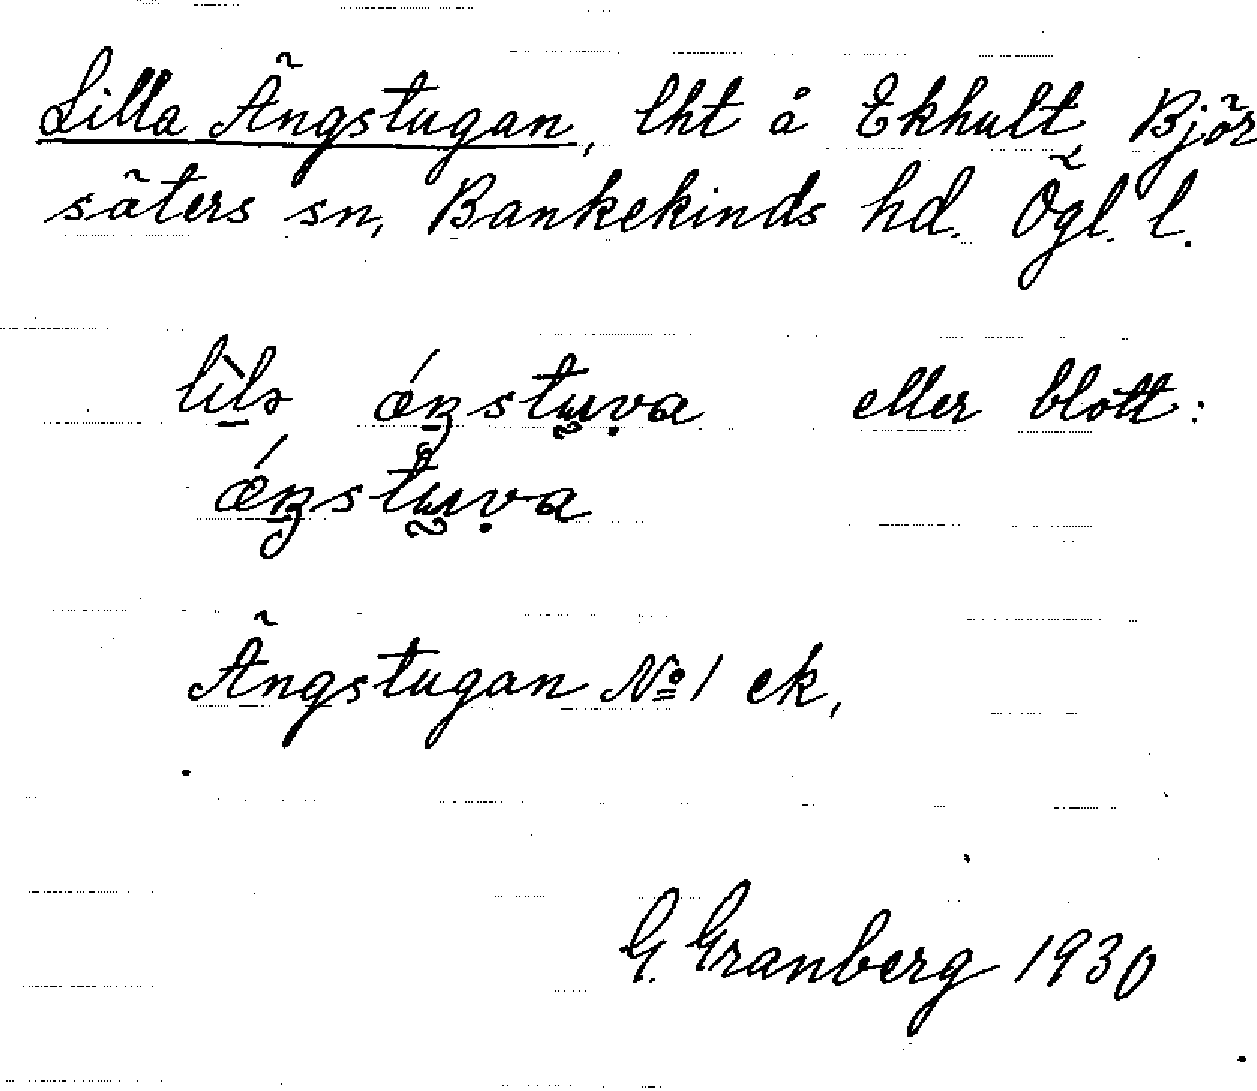 Lilla Ängstugan, lht å Ekhult, Björ
säters sn, Bankekinds hd. Ögl. l.
eller blott:
Ängstugan № 1 ek,
G. Granberg 1930